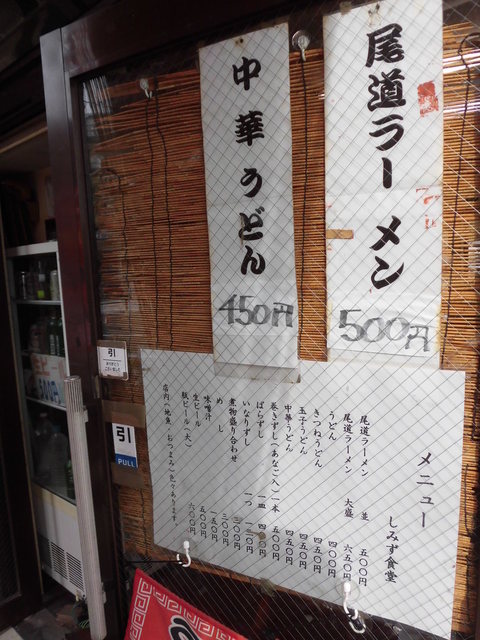 尾道ラーメン
500円
中華うどん
450円
メニュー
しみず食堂
尾道ラーメン 並 五〇〇円
尾道ラーメン 大盛 六五〇円
うどん 四〇〇円
きつねうどん 四五〇円
玉子うどん 四五〇円
中華うどん 四五〇円
巻きずし(あなご入)一本 五〇〇円
ばらずし 一皿 四五〇円
いなりずし 一つ 一三〇円
煮物盛り合わせ 三〇〇円
めし 二〇〇円
味噌汁 一五〇円
生ビール 五〇〇円
瓶ビール(大) 六〇〇円
店内(地魚、おつまみ)色々あります。
引
引
PULL